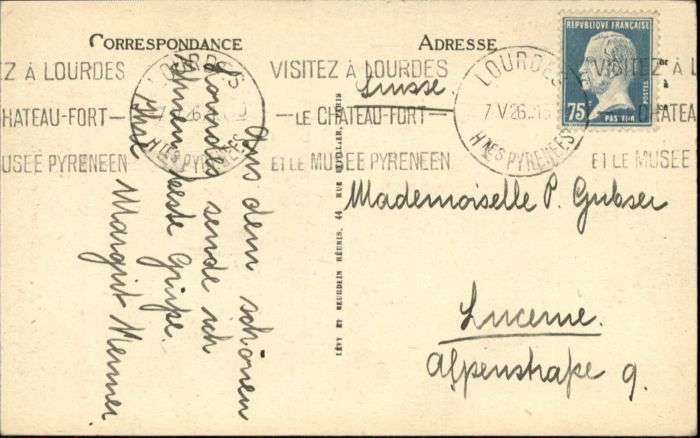 CORRESPONDANCE
Aus dem schönen
Lourdes sende ich
Ihnen beste Grüsse.
Ihre
Margrit
LÉVY ET NEURDEIN RÉUNIS, 44 RUE LETELLIER, PARIS
ADRESSE
Suisse
Mademoiselle P. Gubser
Lucerne.
Alpenstraße 9.
RÉPUBLIQUE FRANÇAISE
POSTES
75c
PASTEUR
LOURDES
7 V 26
Htes PYRENEES
VISITEZ À LOURDES
LE CHATEAU-FORT
ET LE MUSÉE PYRENEEN
LOURDES
7 26
Htes PYRENEES
EZ À LOURDES
CHATEAU-FORT
USÉE PYRENEEN
VISITEZ À LOURDES
LE CHATEAU-FORT
ET LE MUSEE